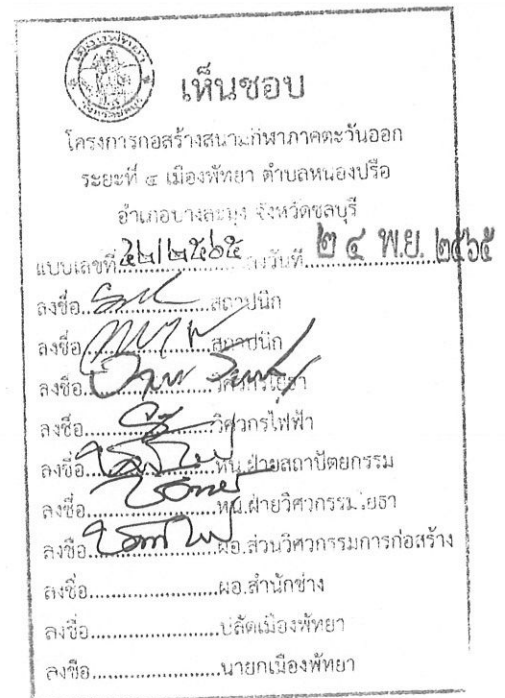 เมืองพัทยา
จังหวัดชลบุรี
เห็นชอบ
โครงการก่อสร้างสนามกีฬาภาคตะวันออก
ระยะที่ ๔ เมืองพัทยา ตำบลหนองปรือ
อำเภอบางละมุง จังหวัดชลบุรี
แบบเลขที่ ๕๒/๒๕๖๕ ลงวันที่ ๒๔ พ.ย. ๒๕๖๕
ลงชื่อ....................สถาปนิก
ลงชื่อ....................สถาปนิก
ลงชื่อ....................วิศวกรโยธา
ลงชื่อ....................วิศวกรไฟฟ้า
ลงชื่อ....................หน.ฝ่ายสถาปัตยกรรม
ลงชื่อ....................หน.ฝ่ายวิศวกรรมโยธา
ลงชื่อ....................ผอ.ส่วนวิศวกรรมการก่อสร้าง
ลงชื่อ....................ผอ.สำนักช่าง
ลงชื่อ....................ปลัดเมืองพัทยา
ลงชื่อ....................นายกเมืองพัทยา